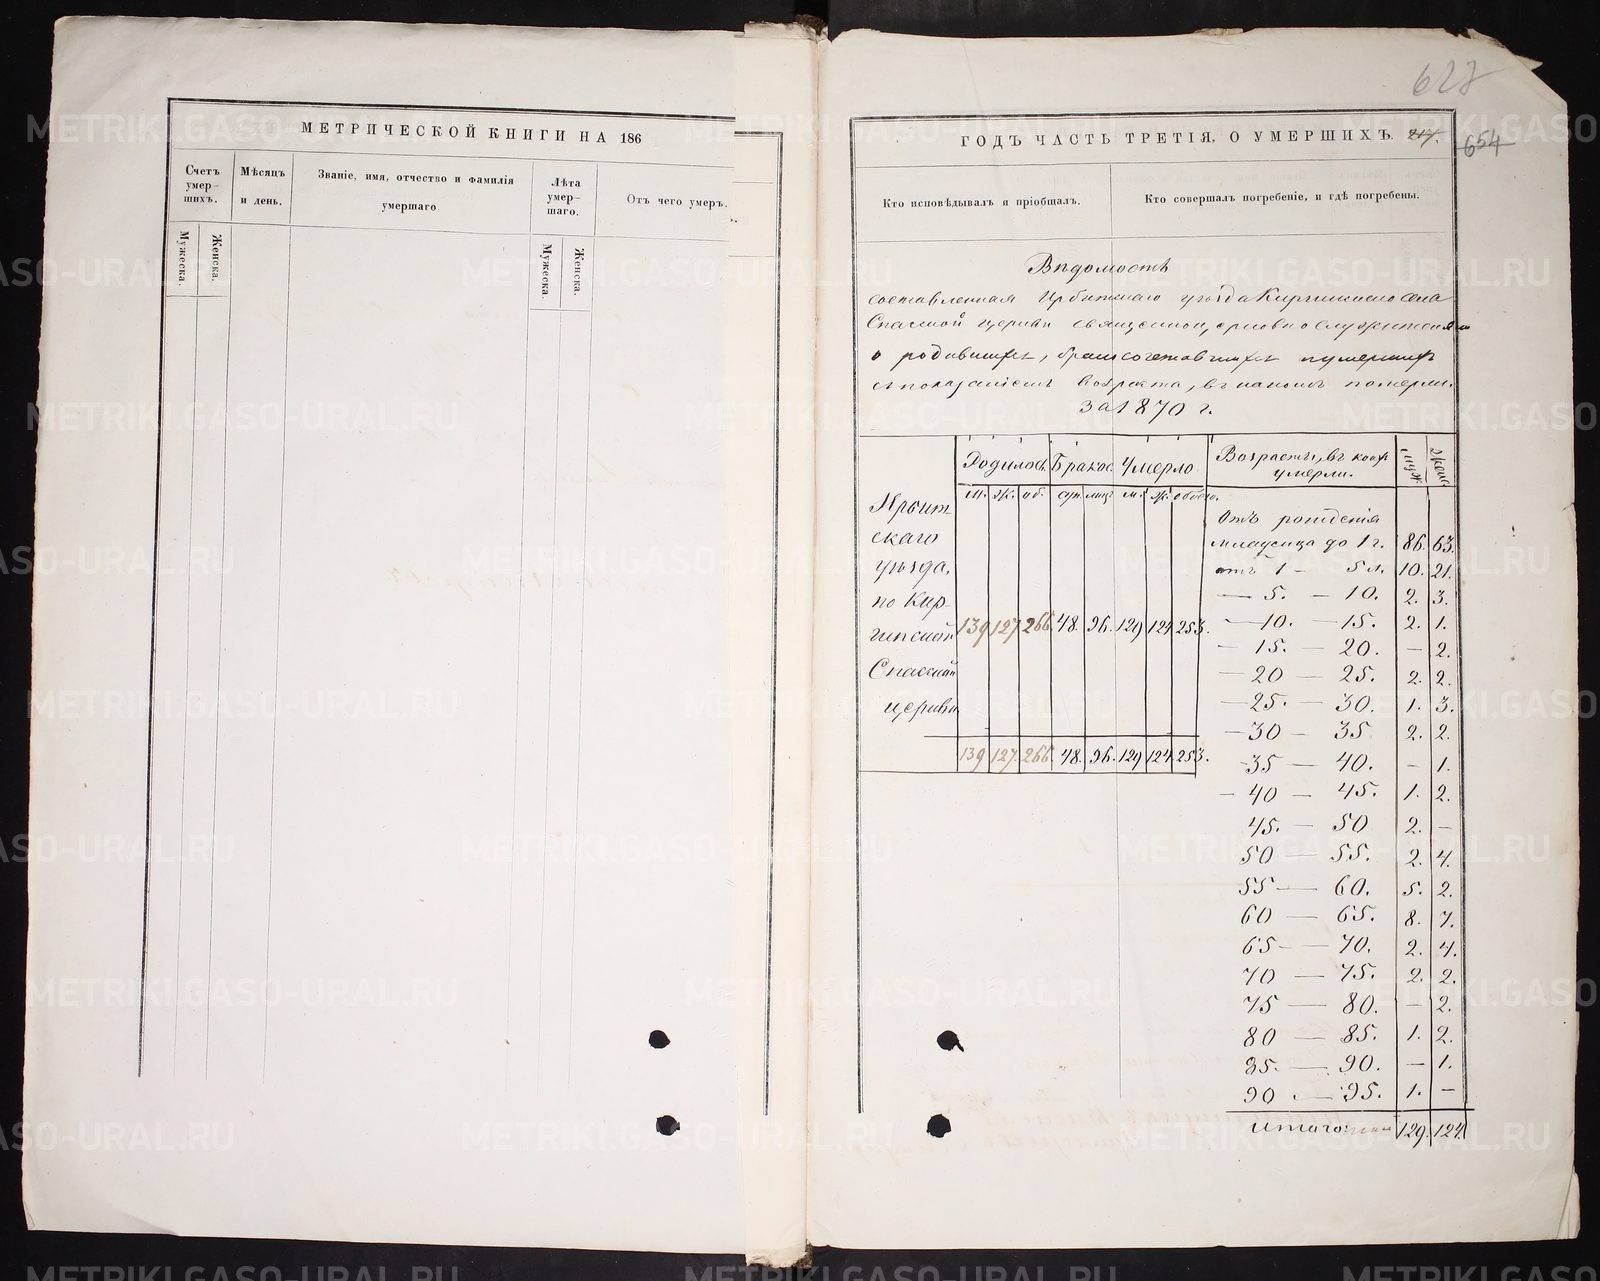 МЕТРИЧЕСКОЙ КНИГИ НА 186
Счетъ умер-
шихъ.
Мѣсяцъ
и день.
Званіе, имя, отчество и фамилія
умершаго
Лѣта
умер-
шаго.
Отъ чего умеръ.
Мужеска.
Женска.
Мужеска.
Женска.
628
ГОДЪ ЧАСТЬ ТРЕТІЯ, О УМЕРШИХЪ. 217.
654
Кто исповѣдывалъ и пріобщалъ.
Кто совершалъ погребеніе, и гдѣ погребены.
Вѣдомость
составленная Ирбитскаго уѣзда Киргинскаго села
Спасской церкви священно, церковнослужителями
о родившихся, бракосочетавшихся и умершихъ
съ показаніемъ возраста, въ какомъ померли.
за 1870 г.
Родилось Браков. Умерло
Возрастъ, въ коемъ
умерли.
муж.
женс.
м. ж. об. суп. лиц. м. ж. обоего.
Ирбит-
скаго
уѣзда,
по Кир-
гинской
Спасской
церкви
139 127 266 48. 96. 129 124 253.
139 127. 266. 48. 96. 129 124 253.
Отъ рожденія
младенца до 1 г. 86. 63.
отъ 1 — 5 л. 10. 21.
— 5. — 10. 2. 3.
— 10. — 15. 2. 1.
— 15. — 20. — 2.
— 20 — 25. 2. 2.
— 25. — 30. 1. 3.
— 30 — 35 2. 2.
— 35 — 40. — 1.
— 40 — 45. 1. 2.
45. — 50 2. —
50 — 55. 2. 4.
55 — 60. 5. 2.
60 — 65. 8. 7.
65 — 70. 2. 4.
70 — 75. 2. 2.
75 — 80. — 2.
80 — 85. 1. 2.
85. — 90. — 1.
90 — 95. 1. —
Итого 129. 124.
METRIKI.GASO-URAL.RU